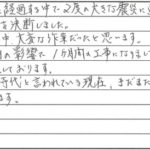 経過する中で2度の大きな震災に
を決断しました。
中、大変な作業だったと思います。
の影響で1ヶ月間の工事になりまし
しております。
時代と言われている現在、まだまだ
ます。